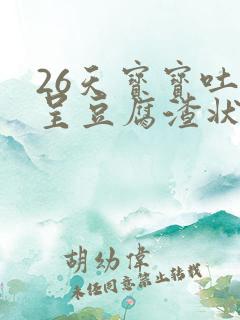 26天寶寶吐
呈豆腐渣狀
胡幼偉
未经同意禁止转载